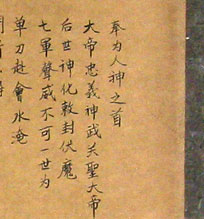 奉为人神之首
大帝忠義神武关聖大帝
后世神化敕封伏魔
七軍聲威不可一世为
单刀赴會水淹